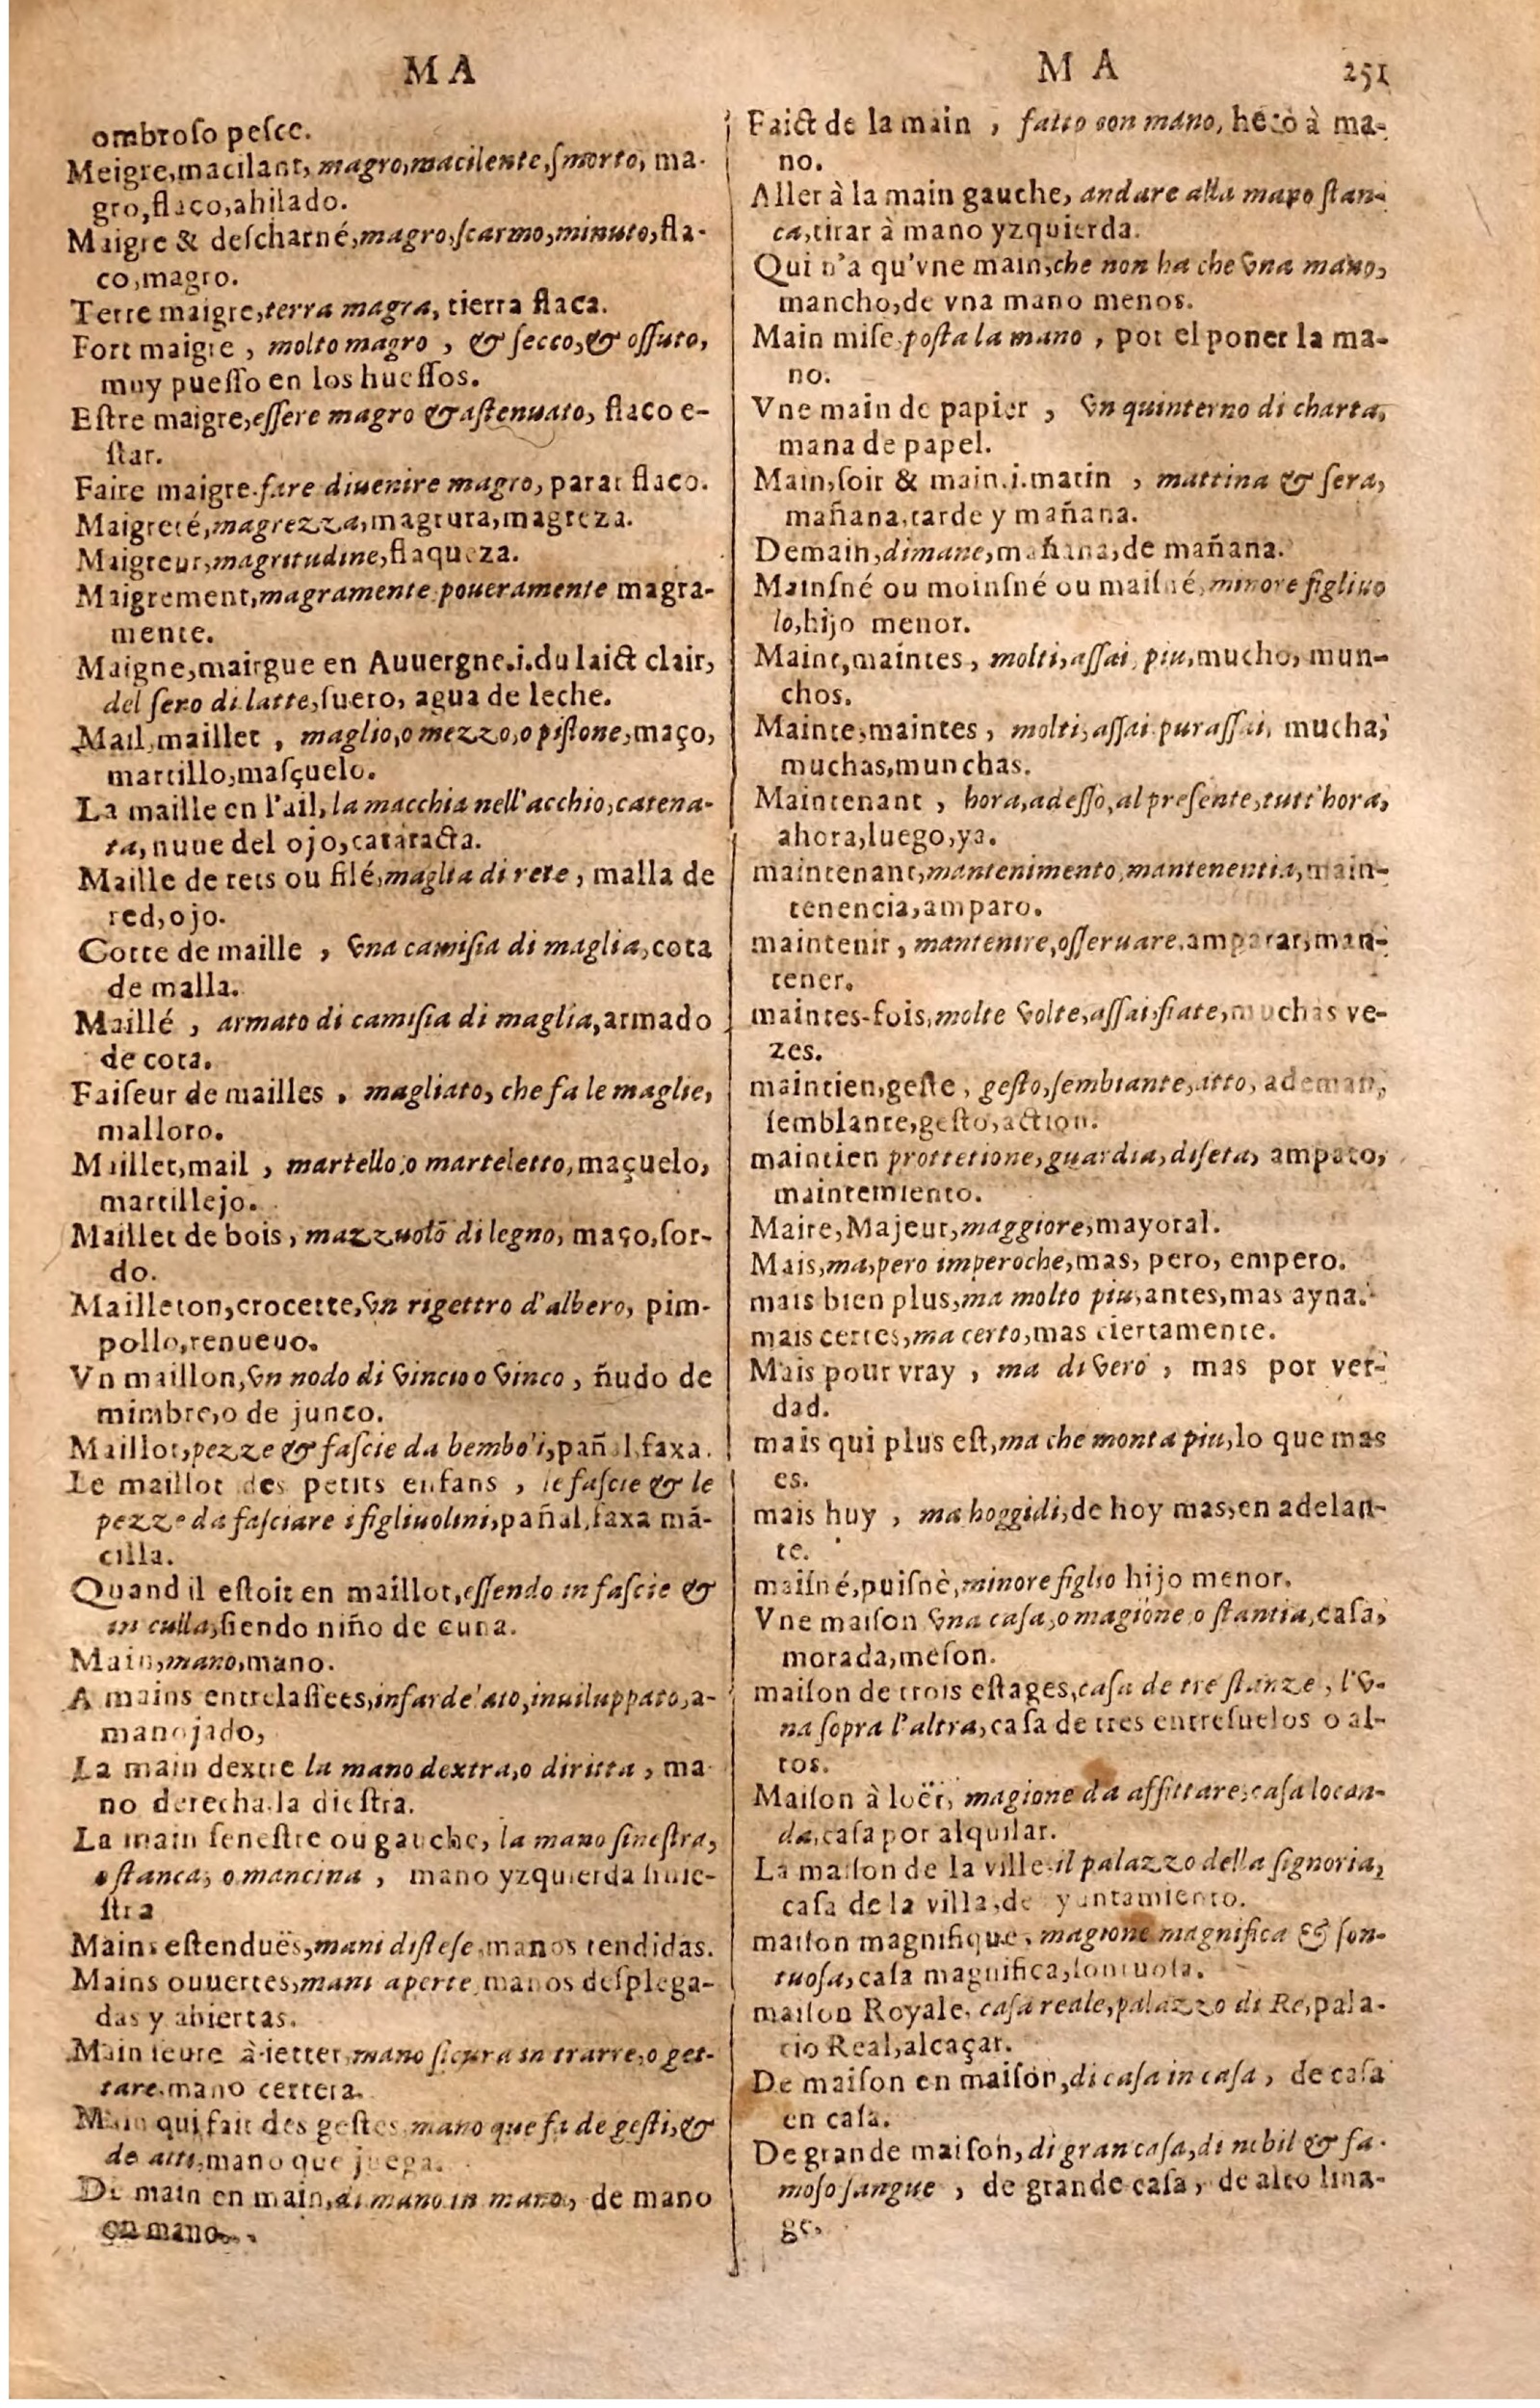 MA
ombroſo peſce.
Meigre,macilant, magro,macilente,ſmorto, ma-
gro,flaco,ahilado.
Maigre & deſcharné,magro,ſcarmo,minuto,fla-
co,magro.
Terre maigre,terra magra, tierra flaca.
Fort maigre , molto magro , & ſecco,& oſſuto,
muy pueſſo en los hueſſos.
Eſtre maigre,eſſere magro & aſtenuato, flaco e-
ſtar.
Faire maigre.fare diuenire magro, parar flaco.
Maigreté,magrezza,magrura,magreza.
Maigreur,magritudine,flaqueza.
Maigrement,magramente poueramente magra-
mente.
Maigne,mairgue en Auuergne.i.du laict clair,
del ſero di latte,ſuero, agua de leche.
Mail,maillet , maglio,o mezzo,o piſtone,maço,
martillo,maſçuelo.
La maille en l'ail, la macchia nell'acchio,catena-
ta,nuue del ojo,cataracta.
Maille de rets ou filé,maglia di rete , malla de
red,ojo.
Cotte de maille , vna camiſia di maglia,cota
de malla.
Maillé , armato di camiſia di maglia,armado
de cota.
Faiſeur de mailles , magliato, che fa le maglie,
malloro.
Maillet,mail , martello,o marteletto,maçuelo,
martillejo.
Maillet de bois , mazzuolo di legno, maço,ſor-
do.
Mailleton,crocette,vn rigettro d'albero, pim-
pollo,renueuo.
Vn maillon,vn nodo di vincio o vinco , ñudo de
mimbre,o de junco.
Maillot,pezze & faſcie da bembo'i,pañal,faxa.
Le maillot des petits enfans , le faſcie & le
pezze da faſciare i figliuolini,pañal,faxa mã-
cilla.
Quand il eſtoit en maillot,eſſendo in faſcie &
in culla,ſiendo niño de cuna.
Main,mano,mano.
A mains entrelaſſees,infarde'ato,inuiluppato,a-
manojado,
La main dextre la mano dextra,o diritta , ma-
no derecha.la dieſtra.
La main ſeneſtre ou gauche, la mano ſineſtra,
o ſtanca, o mancina , mano yzquierda ſinie-
ſtra
Mains eſtenduës,mani diſteſe,manos tendidas.
Mains ouuertes,mani aperte manos deſplega-
das y abiertas.
Main ſeure à ietter,mano ſicura in trarre,o get-
tare.mano certera.
Main qui fait des geſtes mano que fa de geſti,&
de atti,mano que juega.
De main en main,di mano in mano, de mano
en mano.
MA 251
Faict de la main , fatto con mano, hecò à ma-
no.
Aller à la main gauche, andare alla mano ſtan-
ca,tirar à mano yzquierda.
Qui n'a qu'vne main,che non ha che vna mano,
mancho,de vna mano menos.
Main miſe,poſta la mano , por el poner la ma-
no.
Vne main de papier , vn quinterno di charta,
mana de papel.
Main,ſoir & main.i.matin , mattina & ſera,
mañana,tarde y mañana.
Demain,dimane,mañana,de mañana.
Mainſné ou moinſné ou maiſné,minore figliuo
lo,hijo menor.
Maint,maintes , molti,aſſai, piu,mucho, mun-
chos.
Mainte,maintes , molti,aſſai.puraſſai, mucha,
muchas,munchas.
Maintenant , hora,adeſſo,al preſente,tutt'hora,
ahora,luego,ya.
maintenant,mantenimento,mantenentia,main-
tenencia,amparo.
maintenir , mantenire,oſſeruare.amparar,man-
tener.
maintes-fois,molte volte,aſſai,fiate,muchas ve-
zes.
maintien,geſte , geſto,ſembiante,atto, ademan,
ſemblante,geſto,action.
maintien prottetione,guardia,difeta, amparo,
maintemiento.
Maire,Majeur,maggiore,mayoral.
Mais,ma,pero imperoche,mas, pero, empero.
mais bien plus,ma molto piu,antes,mas ayna.
mais certes,ma certo,mas ciertamente.
Mais pour vray , ma di vero , mas por ver-
dad.
mais qui plus eſt,ma che monta piu,lo que mas
es.
mais huy , ma hoggidi,de hoy mas,en adelan-
te.
maiſné,puiſnè,minore figlio hijo menor.
Vne maiſon vna caſa,o magione o ſtantia,caſa,
morada,meſon.
maiſon de trois eſtages,caſa de tre ſtanze , l'v-
na ſopra l'altra,caſa de tres entreſuelos o al-
tos.
Maiſon à loër, magione da affittare,caſa locan-
da,caſa por alquilar.
La maiſon de la ville.il palazzo della ſignoria,
caſa de la villa,de yuntamiento.
maiſon magnifique, magione magnifica & ſon-
tuoſa,caſa magnifica,ſontuoſa.
maiſon Royale, caſa reale,palazzo di Re,pala-
cio Real,alcaçar.
De maiſon en maiſon,di caſa in caſa , de caſa
en caſa.
De grande maiſon,di gran caſa,di nobil & fa-
moſo ſangue , de grande caſa, de alto lina-
ge.